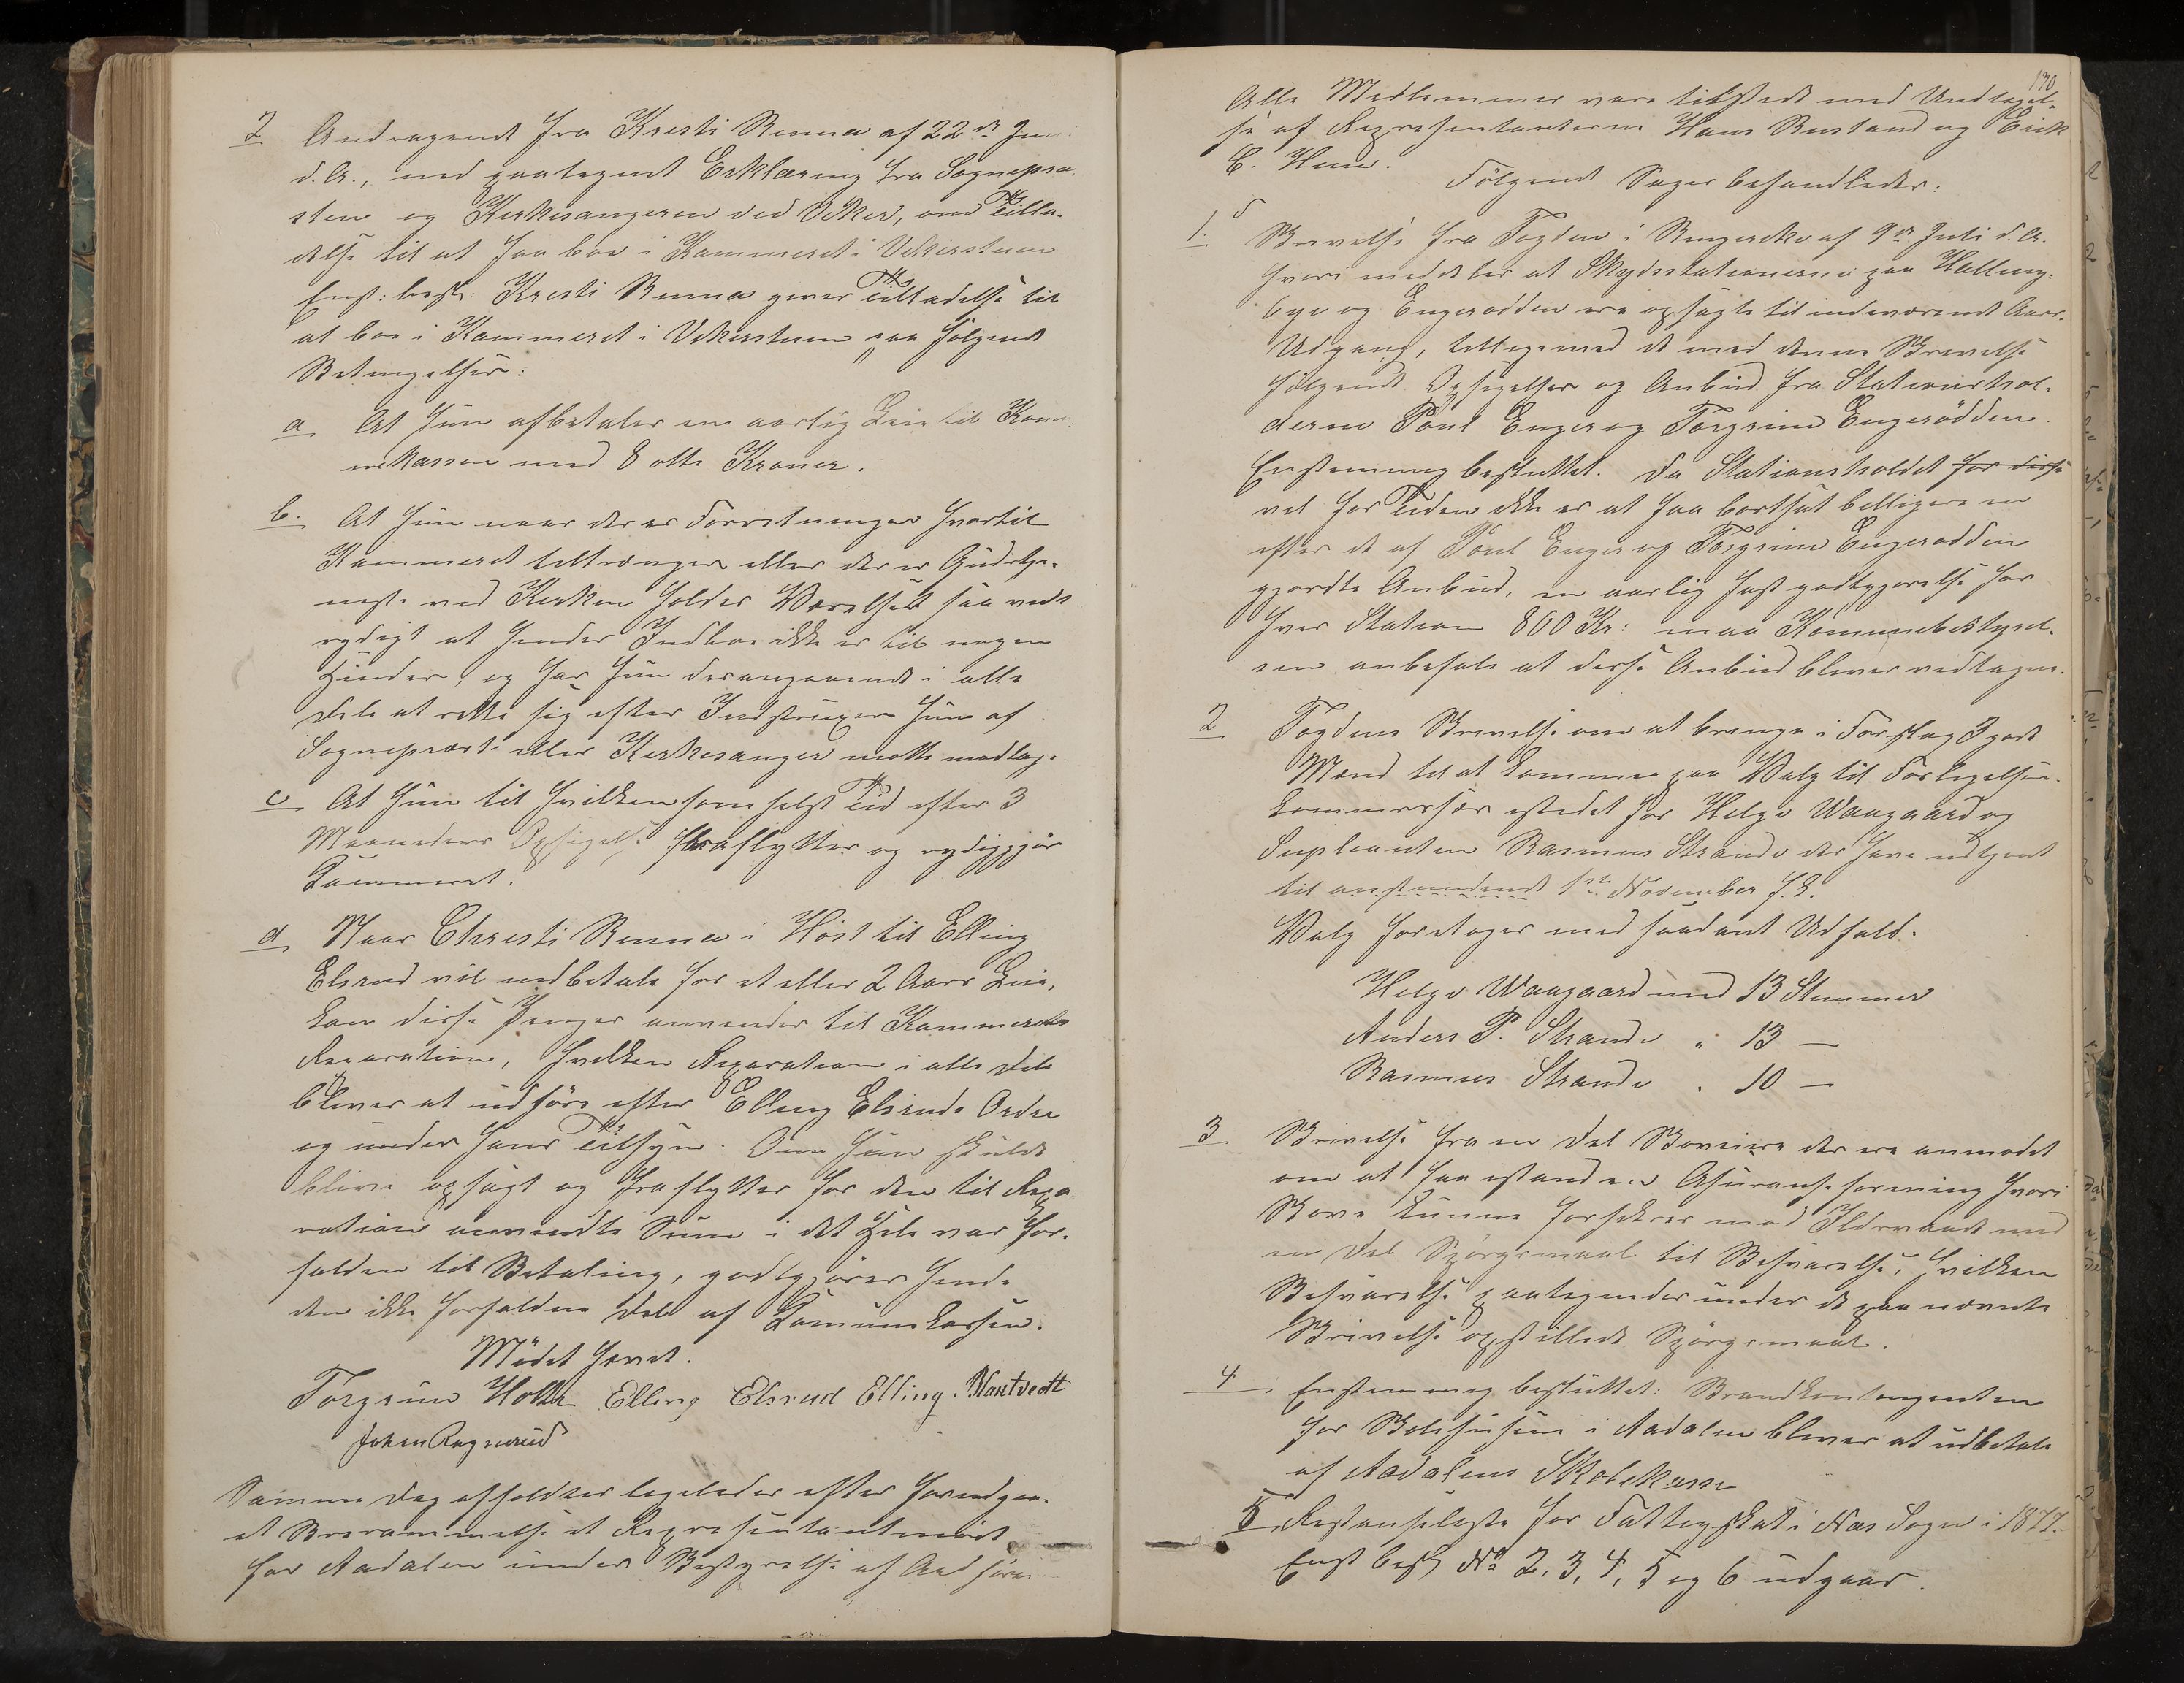 2 Andragende fra Kresti Runna af 22de Juni
d. A., med paategnet Erklæring fra Sognepræ-
sten og Kirkesangeren ved Veker, om Tilla-
delse til at faa boe i Kammeret i Vekerstuen
Enst: besl: Kresti Runna gives Tilladelse til
at boe i Kammeret i Vekerstuen paa følgende
Betingelser:
a At hun afbetaler en aarlig Leie til Kom-
nekassen med 8 otte Kroner.
b. At hun naar der er Forretninger hvortil
Kammeret tiltrænges eller der er Gudstje-
neste ved Kirken holder Værelset saa ved
rydigt at hendes Indboe ikke er til nogen
Hinder, og har hun desangaaende i alle
Dele at rette sig efter Instruxer hun af
Sogneprest eller Kirkesanger motte modtage.
c At hun til hvilkensomhelst Tid efter 3
Maaneders Opsigelse fraflytter og rydiggjør
Kammeret.
d Naar Christi Runna i Høst til Elling
Elsrud vil udbetale for et eller 2 Aars Leie,
kan disse Penger anvendes til Kammerets
Reparation, hvilken Reparation i alle Dele
bliver at udføre efter Elling Elsruds Ordre
og under hans Tilsyn. Om hun skulde
blive opsagt og fraflytter før den til Repa
ration anvendte Sum i det Hele var for-
falden til Betaling, godtgjøres hende
den ikke forfaldne Del af Komunekassen.
Mødet hævet.
Torgrim Holte Elling Elsrud Elling Nartvedt
Johan Ragnerud
Samme Dag afholdtes ligeledes efter forudgaa-
et Berammelse et Repræsentantmøde
for Aadalen under Bestyrelse af Ordføre
130
Alle Medlemmer vare tilstede med Undtagel-
se af Repræsentanterne Hans Rustand og Erik
C. Hem.
Følgende Sager behandledes:
1. Skrivelse fra Fogden i Ringerike af 9de Juli d. A.
hvori meddeles at Skydsstationerne paa Halling-
bye og Engerodden ere opsagte til indeværende Aars-
Udgang, tilligemed de med denne Skrivelse
følgende Opsigelser og Anbud fra Stationshol-
derne Poul Enger og Torgrim Engerødden.
Enstemmig besluttet. Da Stationsholdet for disse
vel for Tiden ikke er at faa bortsat billigere en
efter de af Poul Enger og Torgrim Engerodden
gjordte Anbud, en aarlig fast godtgjørelse for
hver Station 800 Kr: maa Komunebestyrel-
sen anbefale at disse Anbud bliver vedtagne.
2 Fogdens Skrivelse om at bringe i Forslag 3 gode
Mænd til at komme paa Valg til Forligelses-
kommissær istedet for Helge Waagaard og
Supleanten Rasmus Strande der have udtjent
til anstundende 1ste November f. E.
Valg foretoges med saadant Udfald.
Helge Waagaard med 13 Stemmer
Anders P. Strande " 13 —
Rasmus Strande " 10 —
3 Skrivelse fra en Del Skoveiere der ere anmodet
om at faa istand en Assuranseforening hvori
Skove kunne forsikres mod Ildsvaade med
en Del Spørgsmaal til Besvarelse, hvilken
Besvarelse paategnedes under de paa nævnte
Skrivelse opstillede Spørgsmaal.
4 Enstemmig besluttet: Brandkontingenten
for Skolehusene i Aadalen bliver at udbetale
af Aadalens Skolekasse
5 Restanseliste for Fattigskat i Næs Sogn i 1877.
Enst besl No 2, 3, 4, 5 og 6 udgaar.